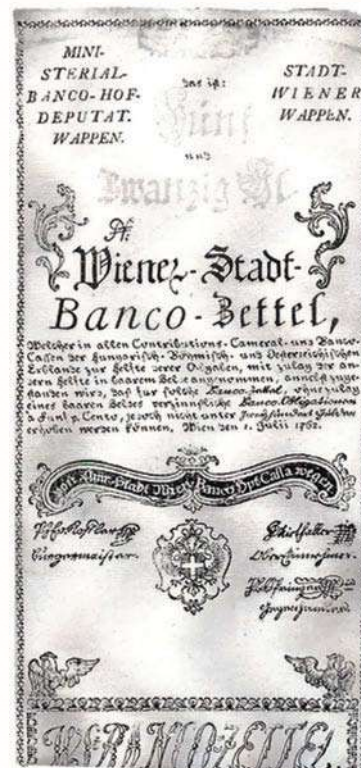 MINI-
STERIAL-
BANCO-HOF-
DEPUTAT.
WAPPEN.
das ist:
STADT-
WIENER
WAPPEN.
Fünf
und
Zwanzig Gl
Wiener-Stadt-
Banco-Zettel,
Welcher in allen Contributions-Cameral-und Banco-
Cassen der Hungarisch-Böhmisch-und Oesterreichischen
Erblande zur Helfte derer Abgaben, mit zulag der an-
dern Helfte in baarem Gelt angenommen, annebst zuge-
standen wird, daß für solche Banco-Zettel, ohne zulag
eines baaren Geldes verzinnsliche Banco-Obligationen
a Fünf p. Cento, jedoch nicht unter Gulden
erhoben werden können, Wien den 1. Julii 1762.
Stadt Banco Cassa wegen
burgermeister.
BANCOZETTEL